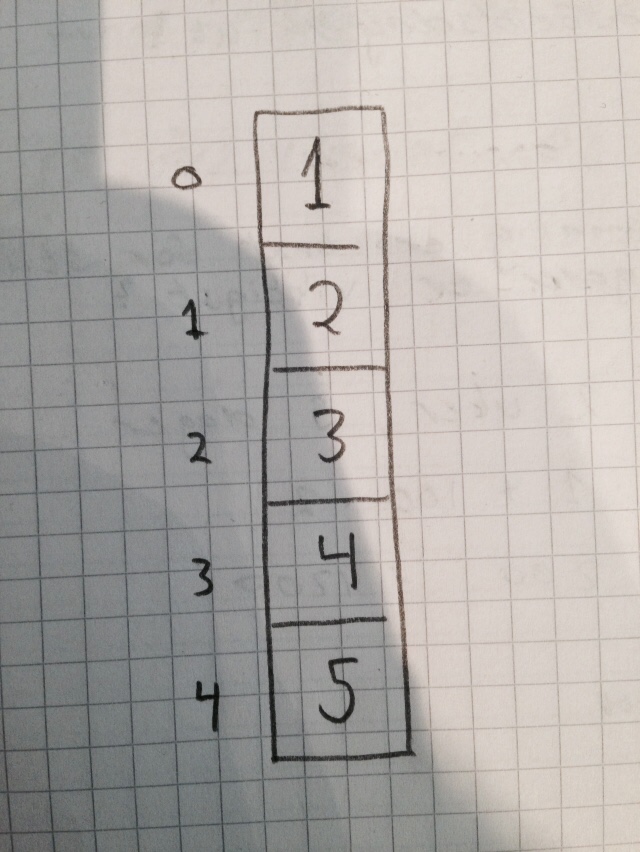 0 1
1 2
2 3
3 4
4 5